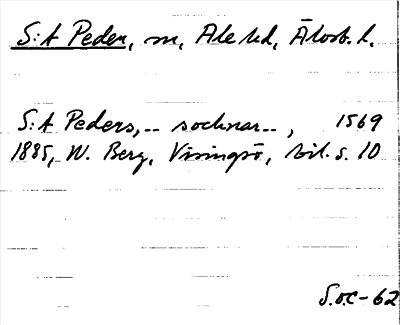 S:t Peder, sn, Ale hd, Älvsb. l.
S:t Peders,.. socknar.., 1569
1885, W. Berg, Visingsö, bil. s. 10
S.o.C-62